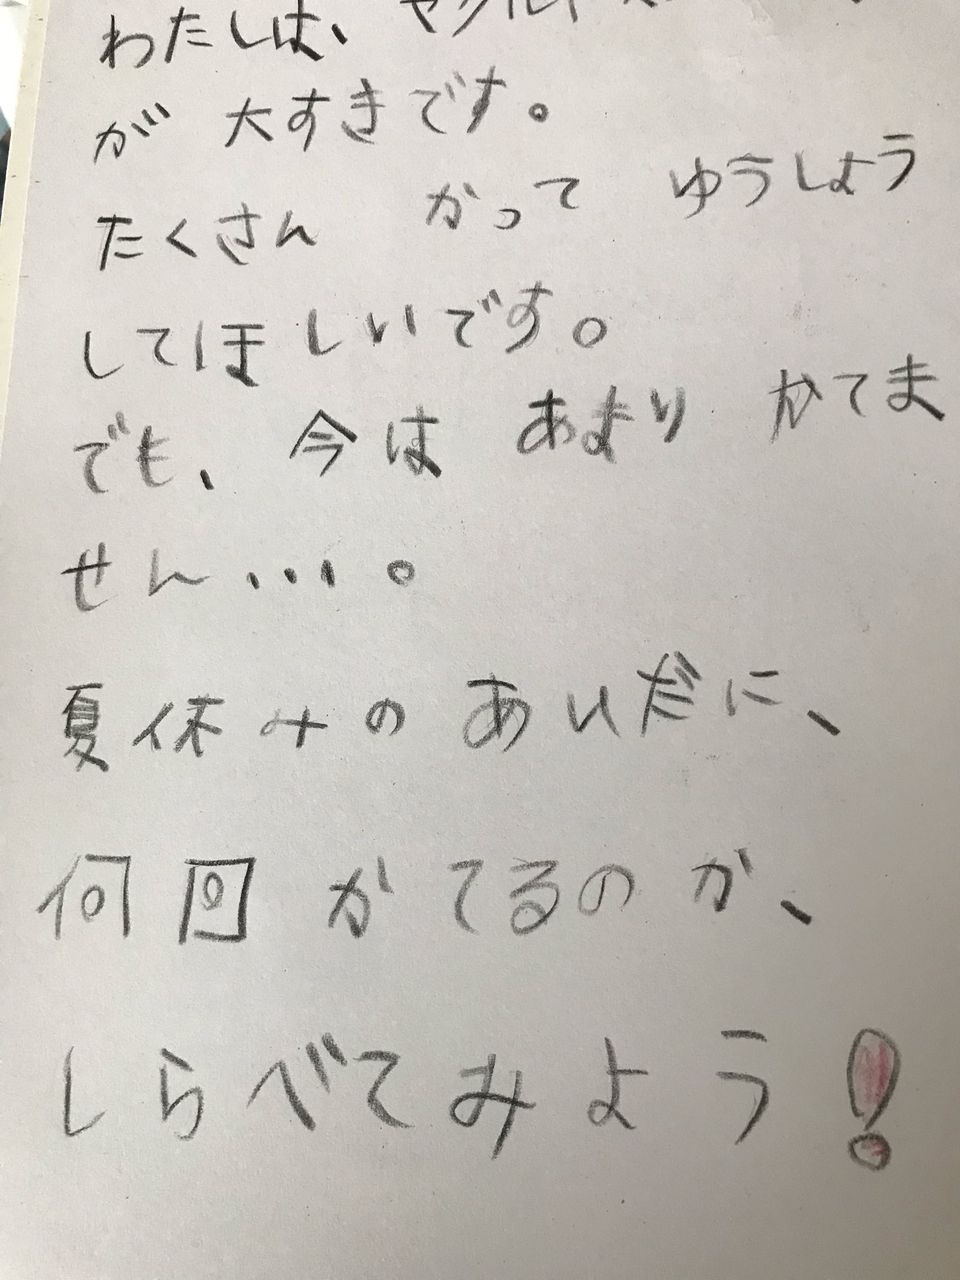 わたしは、ヤクルト
が 大すきです。
たくさん かって ゆうしょう
してほしいです。
でも、今は あまり かてま
せん・・・。
夏休みのあいだに、
何回 かてるのか、
しらべてみよう!